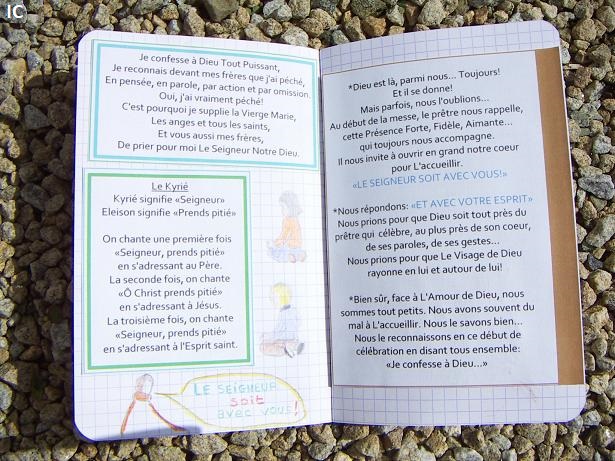 IC
Je confesse à Dieu Tout Puissant,
Je reconnais devant mes frères que j'ai péché,
En pensée, en parole, par action et par omission.
Oui, j'ai vraiment péché!
C'est pourquoi je supplie la Vierge Marie,
Les anges et tous les saints,
Et vous aussi mes frères,
De prier pour moi Le Seigneur Notre Dieu.
Le Kyrié
Kyrié signifie «Seigneur»
Eleison signifie «Prends pitié»
On chante une première fois
«Seigneur, prends pitié»
en s'adressant au Père.
La seconde fois, on chante
«Ô Christ prends pitié»
en s'adressant à Jésus.
La troisième fois, on chante
«Seigneur, prends pitié»
en s'adressant à l'Esprit saint.
LE SEIGNEUR
soit
avec vous!
*Dieu est là, parmi nous... Toujours!
Et il se donne!
Mais parfois, nous l'oublions...
Au début de la messe, le prêtre nous rappelle,
cette Présence Forte, Fidèle, Aimante...
qui toujours nous accompagne.
Il nous invite à ouvrir en grand notre coeur
pour L'accueillir.
«LE SEIGNEUR SOIT AVEC VOUS!»
*Nous répondons: «ET AVEC VOTRE ESPRIT»
Nous prions pour que Dieu soit tout près du
prêtre qui célèbre, au plus près de son coeur,
de ses paroles, de ses gestes...
Nous prions pour que Le Visage de Dieu
rayonne en lui et autour de lui!
*Bien sûr, face à L'Amour de Dieu, nous
sommes tout petits. Nous avons souvent du
mal à L'accueillir. Nous le savons bien...
Nous le reconnaissons en ce début de
célébration en disant tous ensemble:
«Je confesse à Dieu...»